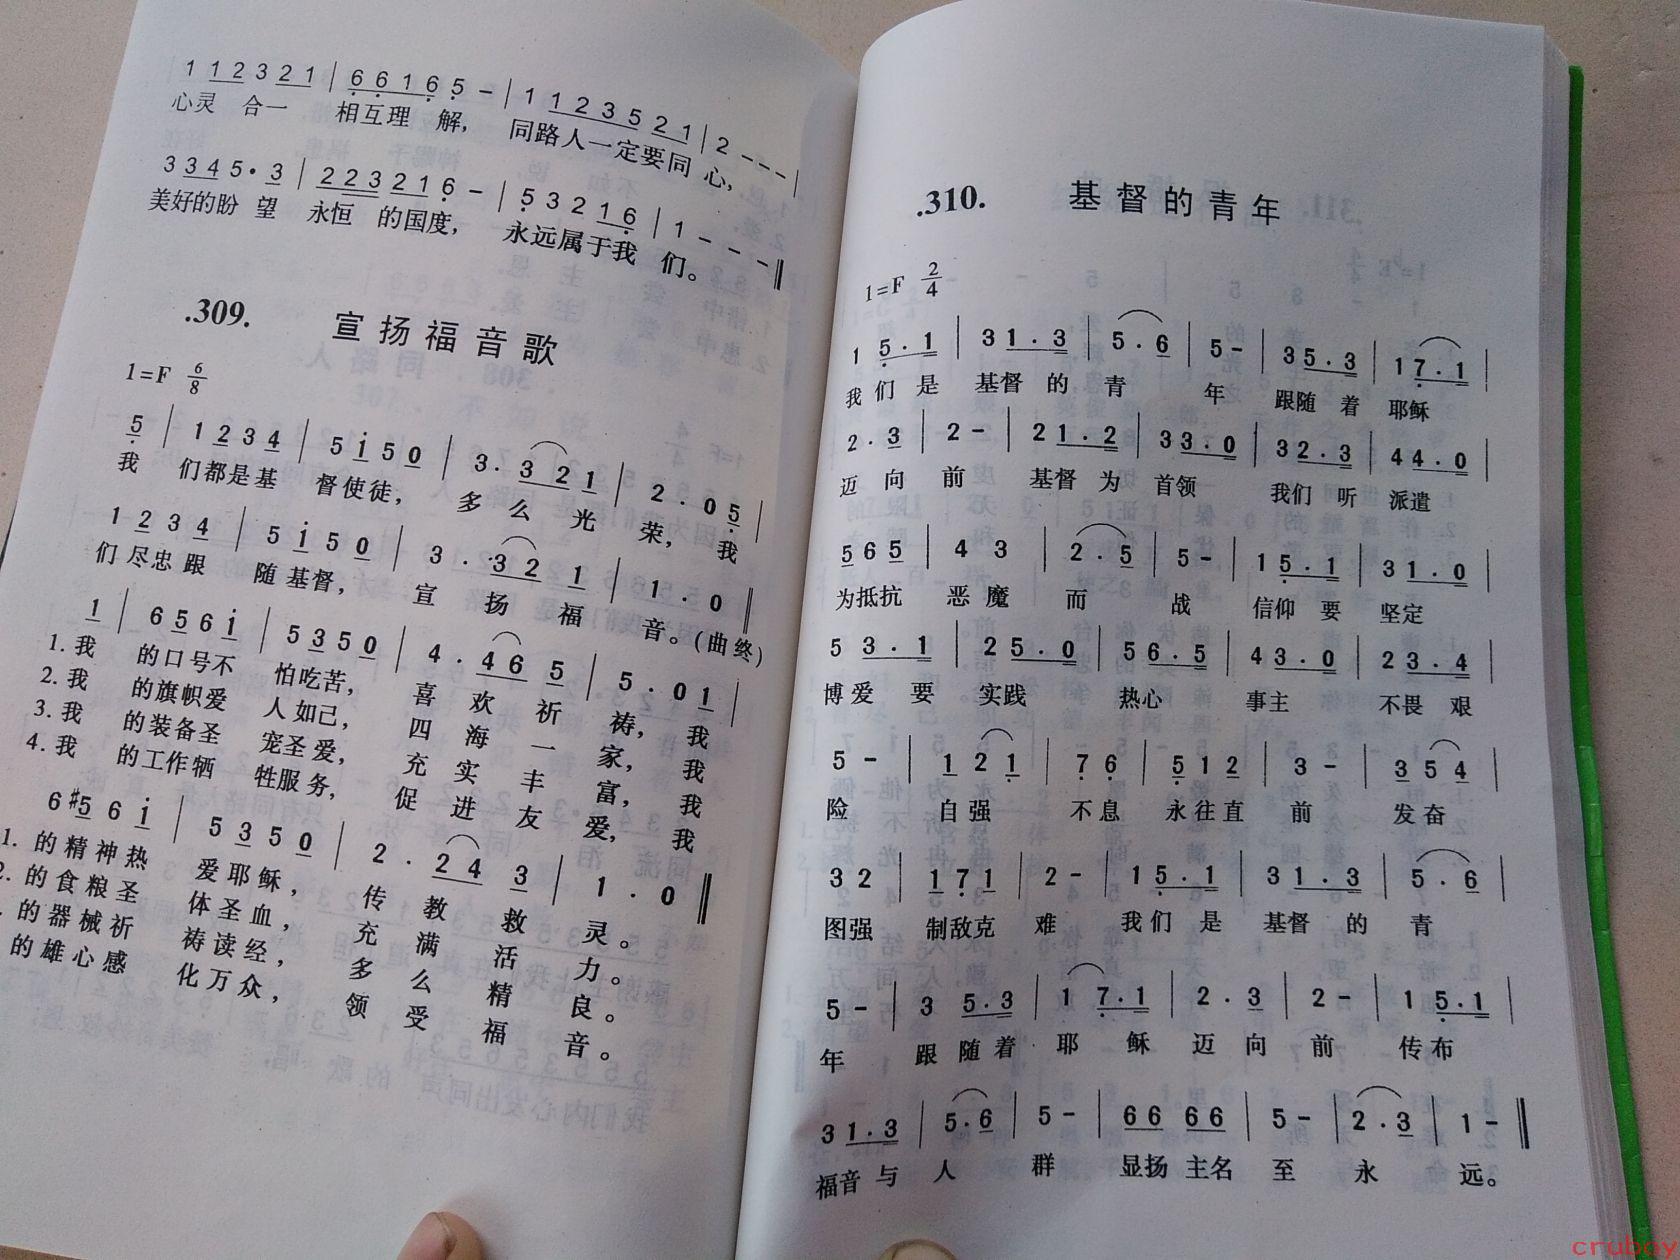 1 1 2 3 2 1 | 6 6 1 6 5 - | 1 1 2 3 5 2 1 | 2 - - - |
心灵 合一 相互理 解， 同路人一定要同 心，
3 3 4 5 · 3 | 2 2 3 2 1 6 - | 5 3 2 1 6 | 1 - - - ‖
美好的盼 望 永恒 的国度， 永远属于我 们。
.309. 宣扬福音歌
1=F 6/8
5 | 1 2 3 4 | 5 i 5 0 | 3 · 3 2 1 | 2 · 0 5 |
我 们都是基 督使徒， 多 么 光 荣， 我
1 2 3 4 | 5 i 5 0 | 3 · 3 2 1 | 1 · 0 ‖
们 尽忠 跟 随 基督， 宣 扬 福 音。(曲终)
1 | 6 5 6 i | 5 3 5 0 | 4 · 4 6 5 | 5 · 0 1 |
1. 我 的口号不 怕吃苦， 喜 欢 祈 祷， 我
2. 我 的旗帜爱 人如己， 四 海 一 家， 我
3. 我 的装备圣 宠圣爱， 充 实 丰 富， 我
4. 我 的工作牺 牲服务， 促 进 友 爱， 我
6 #5 6 i | 5 3 5 0 | 2 · 2 4 3 | 1 · 0 ‖
1. 的精神热 爱耶稣， 传 教 救 灵。
2. 的食粮圣 体圣血， 充 满 活 力。
. 的器械祈 祷读经， 多 么 精 良。
的雄心感 化万众， 领 受 福 音。
.310. 基督的青年
1=F 2/4
1 5 · 1 | 3 1 · 3 | 5 · 6 | 5 - | 3 5 · 3 | 1 7 · 1 |
我 们 是 基督 的 青 年 跟随 着 耶稣
2 · 3 | 2 - | 2 1 · 2 | 3 3 · 0 | 3 2 · 3 | 4 4 · 0 |
迈 向 前 基督 为 首领 我们 听 派遣
5 6 5 | 4 3 | 2 · 5 | 5 - | 1 5 · 1 | 3 1 · 0 |
为抵抗 恶 魔 而 战 信仰 要 坚定
5 3 · 1 | 2 5 · 0 | 5 6 · 5 | 4 3 · 0 | 2 3 · 4 |
博 爱 要 实践 热心 事主 不畏 艰
5 - | 1 2 1 | 7 6 | 5 1 2 | 3 - | 3 5 4 |
险 自强 不息 永往直 前 发奋
3 2 | 1 7 1 | 2 - | 1 5 · 1 | 3 1 · 3 | 5 · 6 |
图强 制敌克 难 我们 是 基督 的 青
5 - | 3 5 · 3 | 1 7 · 1 | 2 · 3 | 2 - | 1 5 · 1 |
年 跟 随 着 耶 稣 迈 向 前 传布
3 1 · 3 | 5 · 6 | 5 - | 6 6 6 6 | 5 - | 2 · 3 | 1 - ‖
福音 与 人 群 显扬 主名 至 永 远。
cruboy